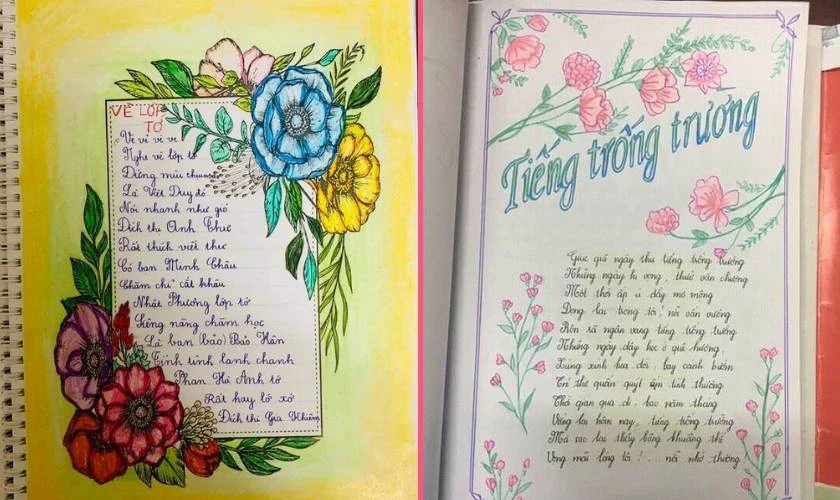 VÈ LỚP
TỚ
Ve vẻ vè ve
Nghe vè lớp tớ
Đứng mũi chịu
Là Việt Duy đó
Nói nhanh như gió
Đích thị Anh Thư
Rất thích viết thư
Có bạn Minh Châu
Chăm chỉ cắt khâu
Nhật Phương lớp tớ
Siêng năng chăm học
Là bạn (bảo) Bảo Hân
Tính tình lanh chanh
Phan Hà Anh tớ
Rất hay lớ xớ
Đích thị Gia Khiêm
Tiếng trống trường
Giục giã ngày thu tiếng trống trường
Những ngày hi vọng, thuở văn chương
Một thời ấp ủ đầy mơ mộng
Đọng lại trong tôi! nỗi vấn vương
Rộn rã ngân vang tiếng trống trường
Những ngày dạy học ở quê hương
xinh hoa đỏ, bay cánh bướm
thơ quấn quýt tình thương
Thời gian qua đi, bao năm tháng
Vẳng lại hôm nay, tiếng trống trường
Mà sao lại thấy bâng khuâng thế
Vọng mãi lòng tôi! ... nỗi nhớ thương